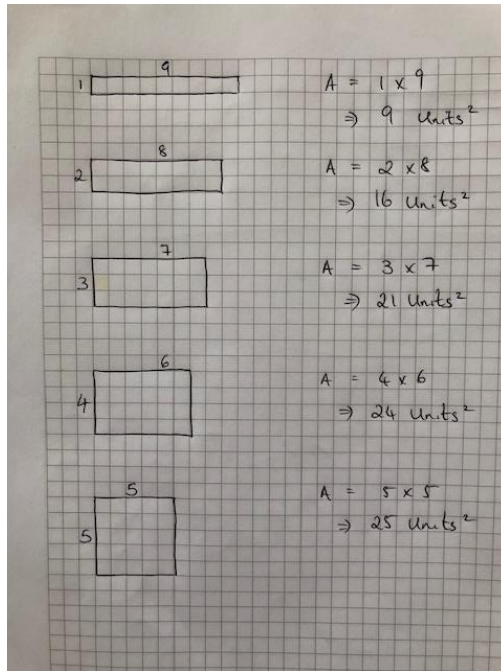 9
1
A = 1 x 9
⇒ 9 Units²
8
2
A = 2 x 8
⇒ 16 Units²
7
3
A = 3 x 7
⇒ 21 Units²
6
4
A = 4 x 6
⇒ 24 Units²
5
5
A = 5 x 5
⇒ 25 Units²